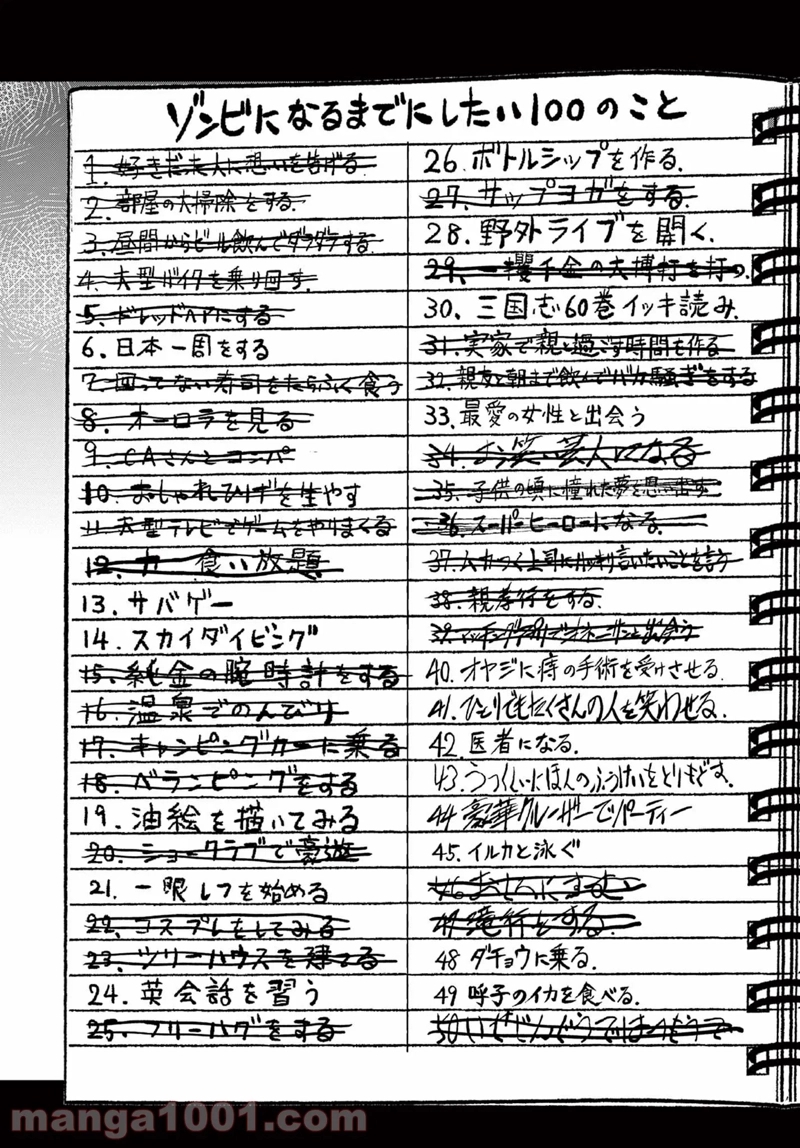 ゾンビになるまでにしたい100のこと
1. 好きだった人に想いを告げる
2. 部屋の大掃除をする.
3. 昼間からビール飲んでダラダラする
4. 大型バイクを乗り回す.
5. ドレッドヘアにする
6. 日本一周をする
7. 回ってない寿司をたらふく食う
8. オーロラを見る
9. CAさんとコンパ
10. おしゃれひげを生やす
11. 大型テレビでゲームをやりまくる
12. 食い放題
13. サバゲー
14. スカイダイビング
15. 純金の腕時計をする
16. 温泉でのんびり
17. キャンピングカーに乗る
18. ベランピングをする
19. 油絵を描いてみる
20. ショークラブで豪遊
21. 一眼レフを始める
22. コスプレをしてみる
23. ツリーハウスを建てる
24. 英会話を習う
25. フリーハグをする
26. ボトルシップを作る.
27. サップヨガをする.
28. 野外ライブを開く.
29. 一攫千金の大博打を打つ
30. 三国志60巻イッキ読み
31. 実家で親と過ごす時間を作る
32. 親友と朝まで飲んでバカ騒ぎをする
33. 最愛の女性と出会う
34. お笑い芸人になる
35. 子供の頃に憧れた夢を思い出す
36. スーパーヒーローになる.
37. ムカつく上司にハッキリ言いたいことを言う
38. 親孝行をする.
39. と出会う
40. オヤジに痔の手術を受けさせる.
41. ひとりでもたくさんの人を笑わせる.
42. 医者になる.
43. うつくしいにほんのふうけいをとりもどす.
44 豪華クルーザーでパーティー
45. イルカと泳ぐ
46
47. 滝行をする.
48 ダチョウに乗る.
49 呼子のイカを食べる.
50
manga1001.com